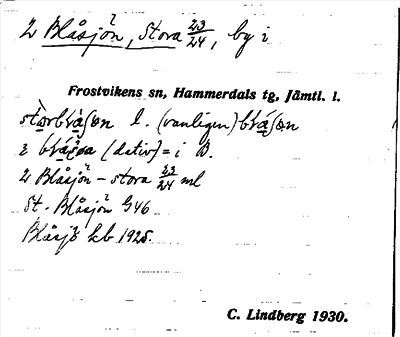 2 Blåsjön, Stora 23/24, by i
Frostvikens sn, Hammerdals tg, Jämtl. l.
l. (vanligen)
i (dativ) = i B.
2 Blåsjön – stora 23/24 ml
St. Blåsjön G46
Blåsjö kb 1925.
C. Lindberg 1930.